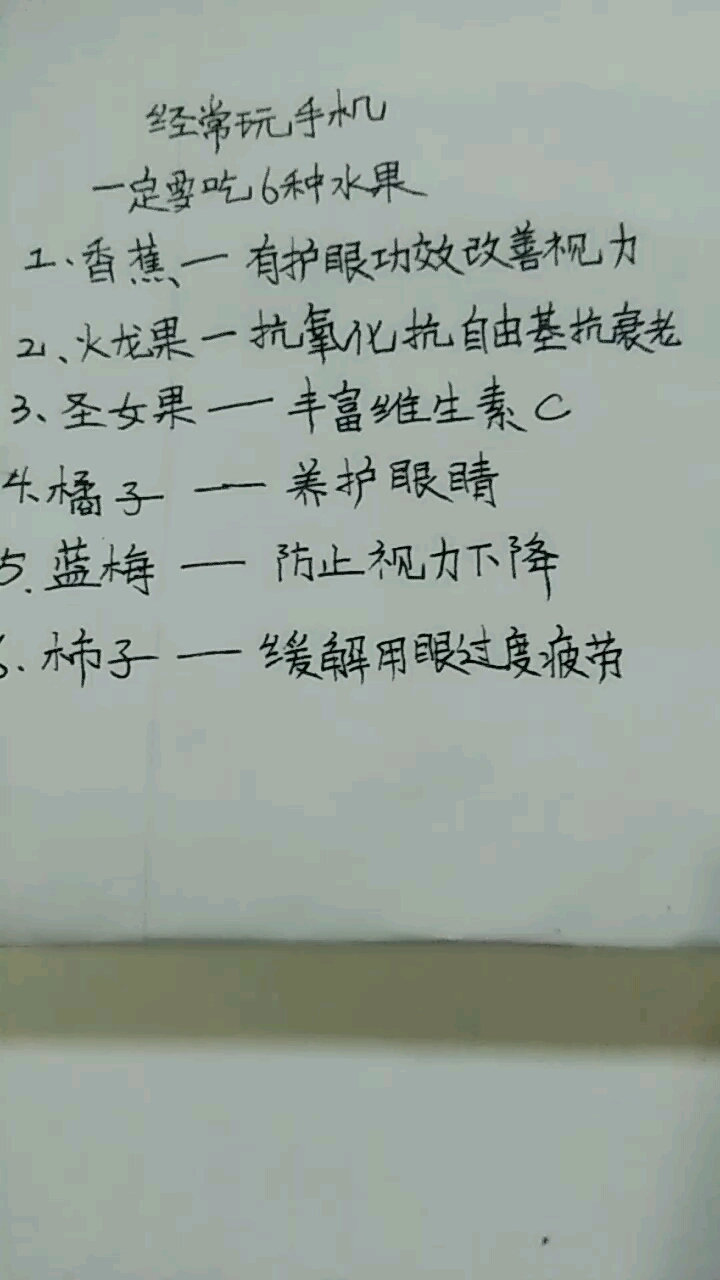 经常玩手机
一定要吃6种水果
1、香蕉、一 有护眼功效改善视力
2、火龙果一抗氧化抗自由基抗衰老
3、圣女果 — 丰富维生素C
4、橘子 — 养护眼睛
5、蓝梅 — 防止视力下降
6、柿子 — 缓解用眼过度疲劳